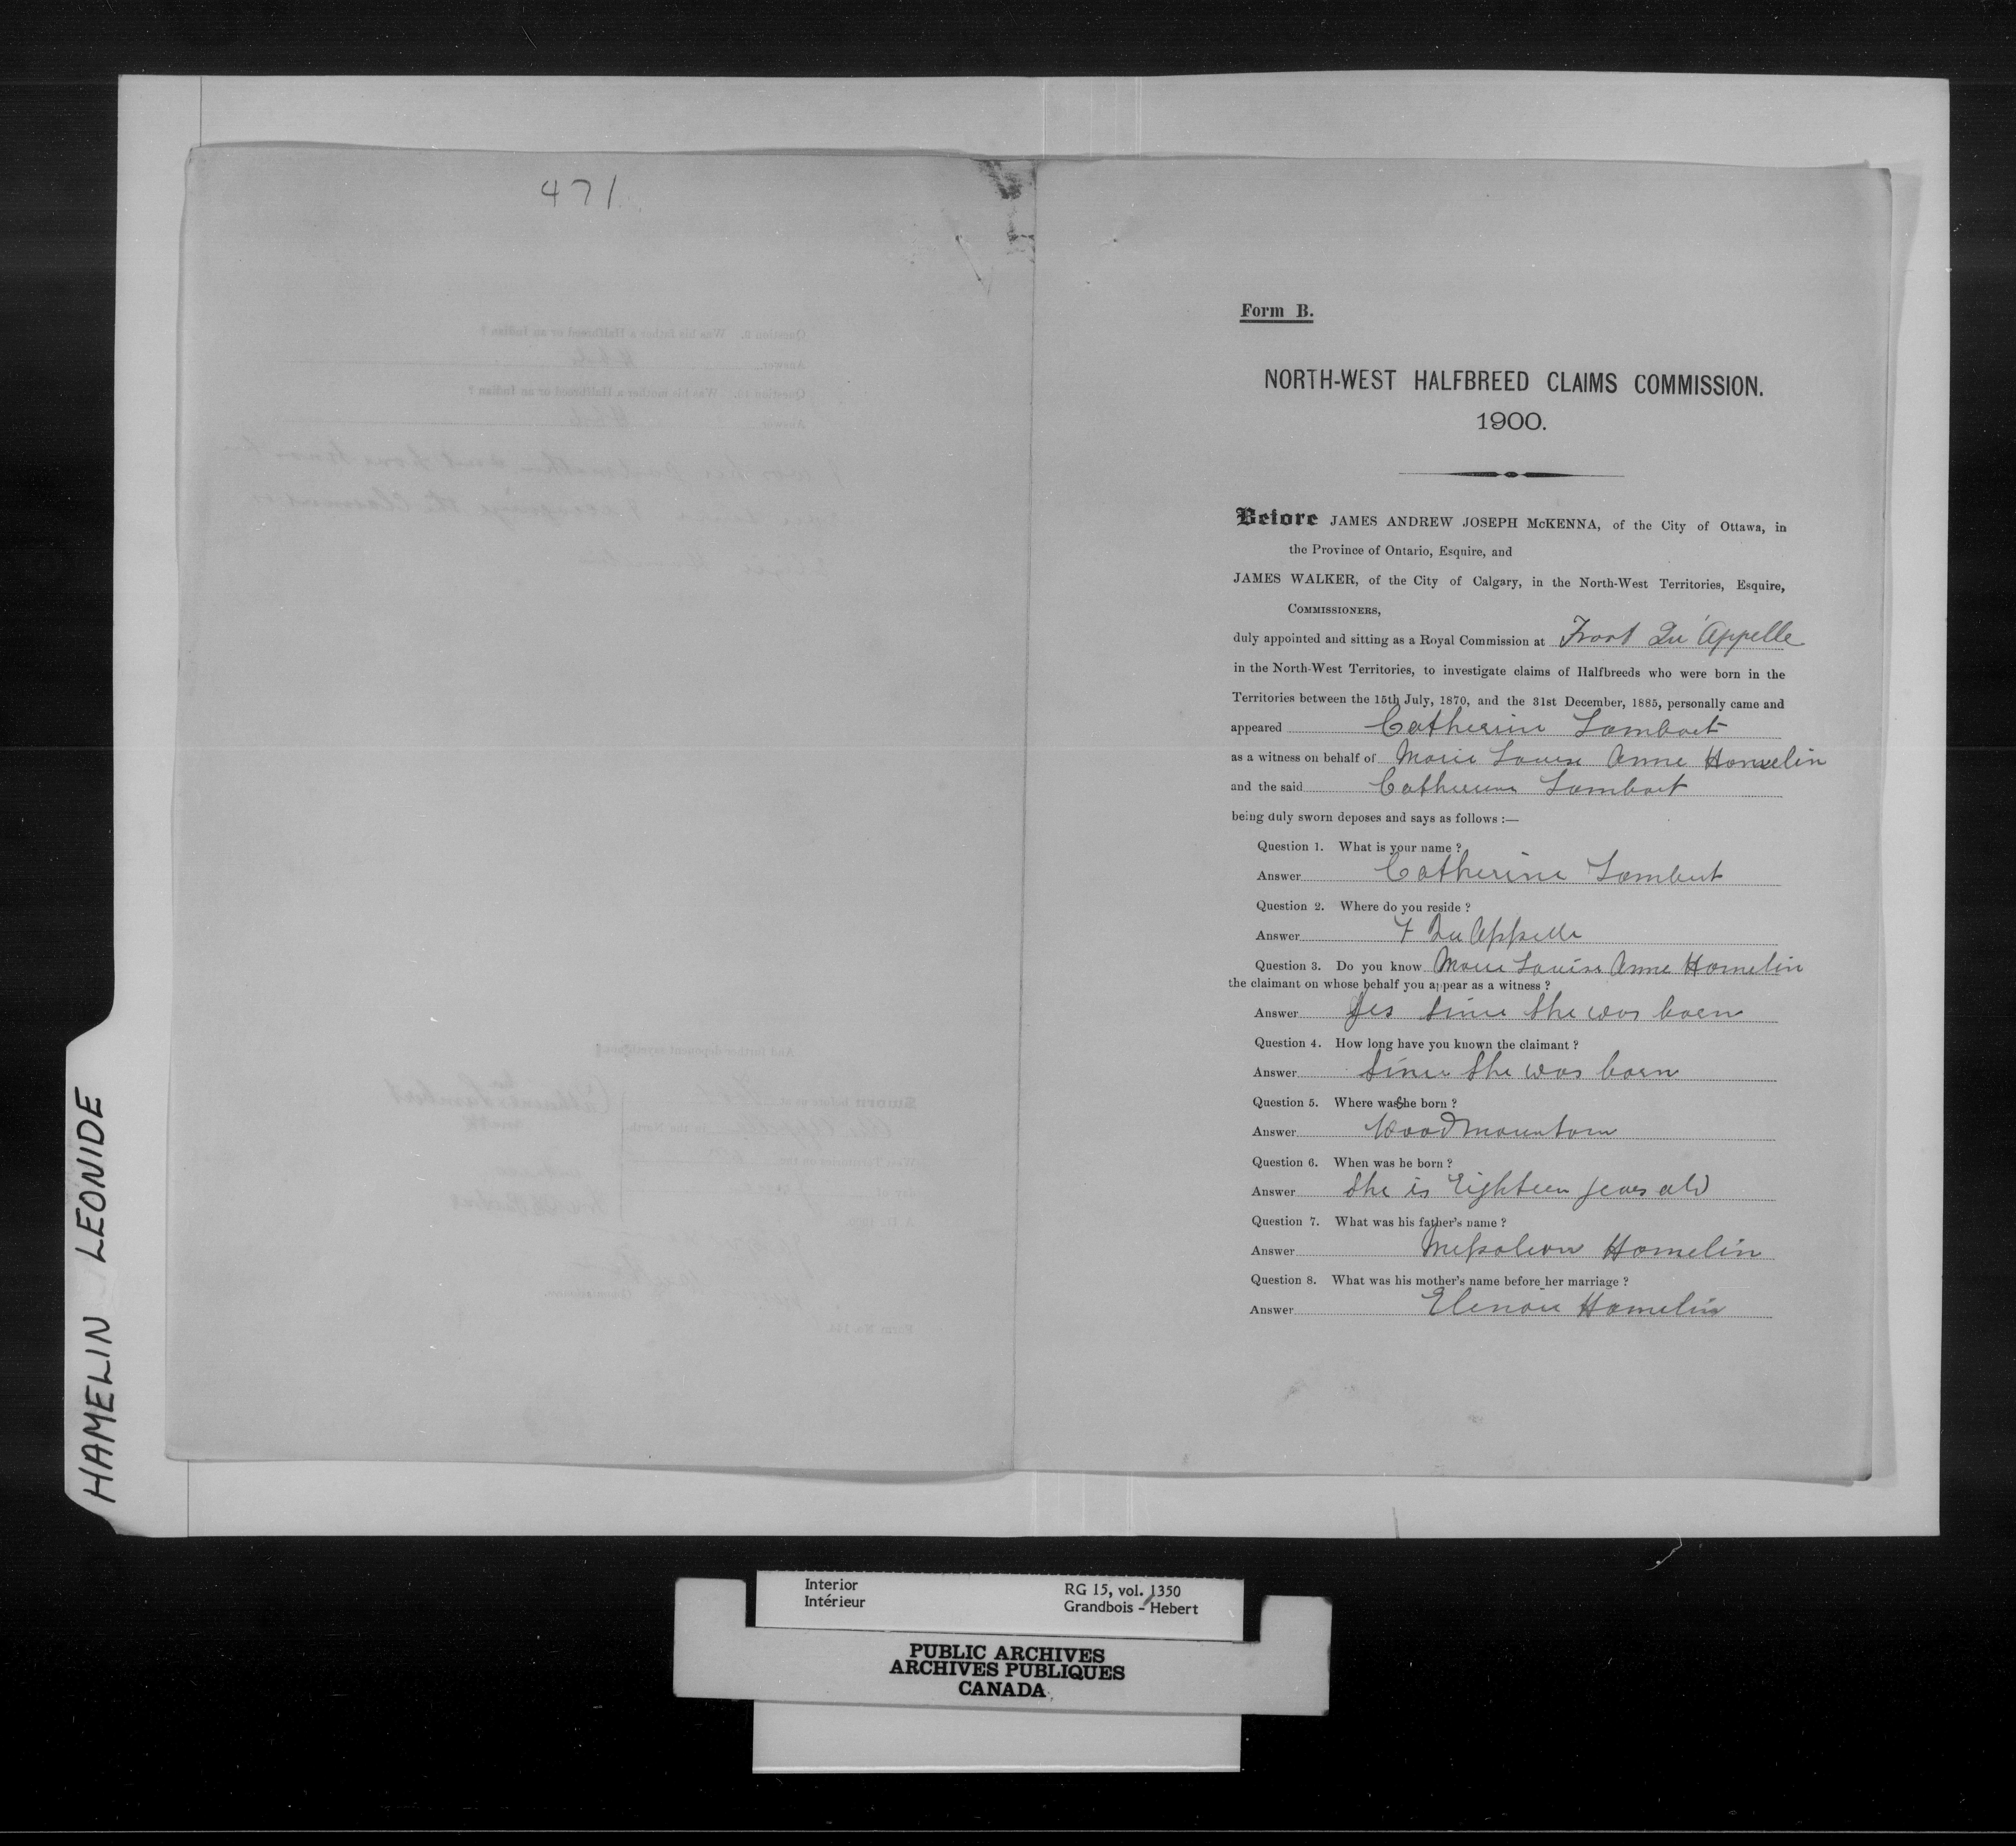 471
Form B.
NORTH-WEST HALFBREED CLAIMS COMMISSION.
1900.
Before JAMES ANDREW JOSEPH McKENNA, of the City of Ottawa, in
the Province of Ontario, Esquire, and
JAMES WALKER, of the City of Calgary, in the North-West Territories, Esquire,
COMMISSIONERS,
duly appointed and sitting as a Royal Commission at Froat Qu'Appelle
in the North-West Territories, to investigate claims of Halfbreeds who were born in the
Territories between the 15th July, 1870, and the 31st December, 1885, personally came and
appeared Catherine Lambart
as a witness on behalf of Marie Louise Anne Hamelin
and the said Catherine Lambart
being duly sworn deposes and says as follows :—
Question 1. What is your name ?
Answer Catherine Lambert
Question 2. Where do you reside ?
Answer F Qu Appelle
Question 3. Do you know Marie Louise Anne Hamelin
the claimant on whose behalf you appear as a witness ?
Answer Yes Since She was born
Question 4. How long have you known the claimant ?
Answer Since She was born
Question 5. Where was She born ?
Answer Wood Mountain
Question 6. When was he born ?
Answer She is Eighteen years old
Question 7. What was his father's name ?
Answer Nepoleon Hamelin
Question 8. What was his mother's name before her marriage ?
Answer Elenore Hamelin
HAMELIN LEONIDE
Interior
Intérieur
RG 15, vol. 1350
Grandbois - Hebert
PUBLIC ARCHIVES
ARCHIVES PUBLIQUES
CANADA